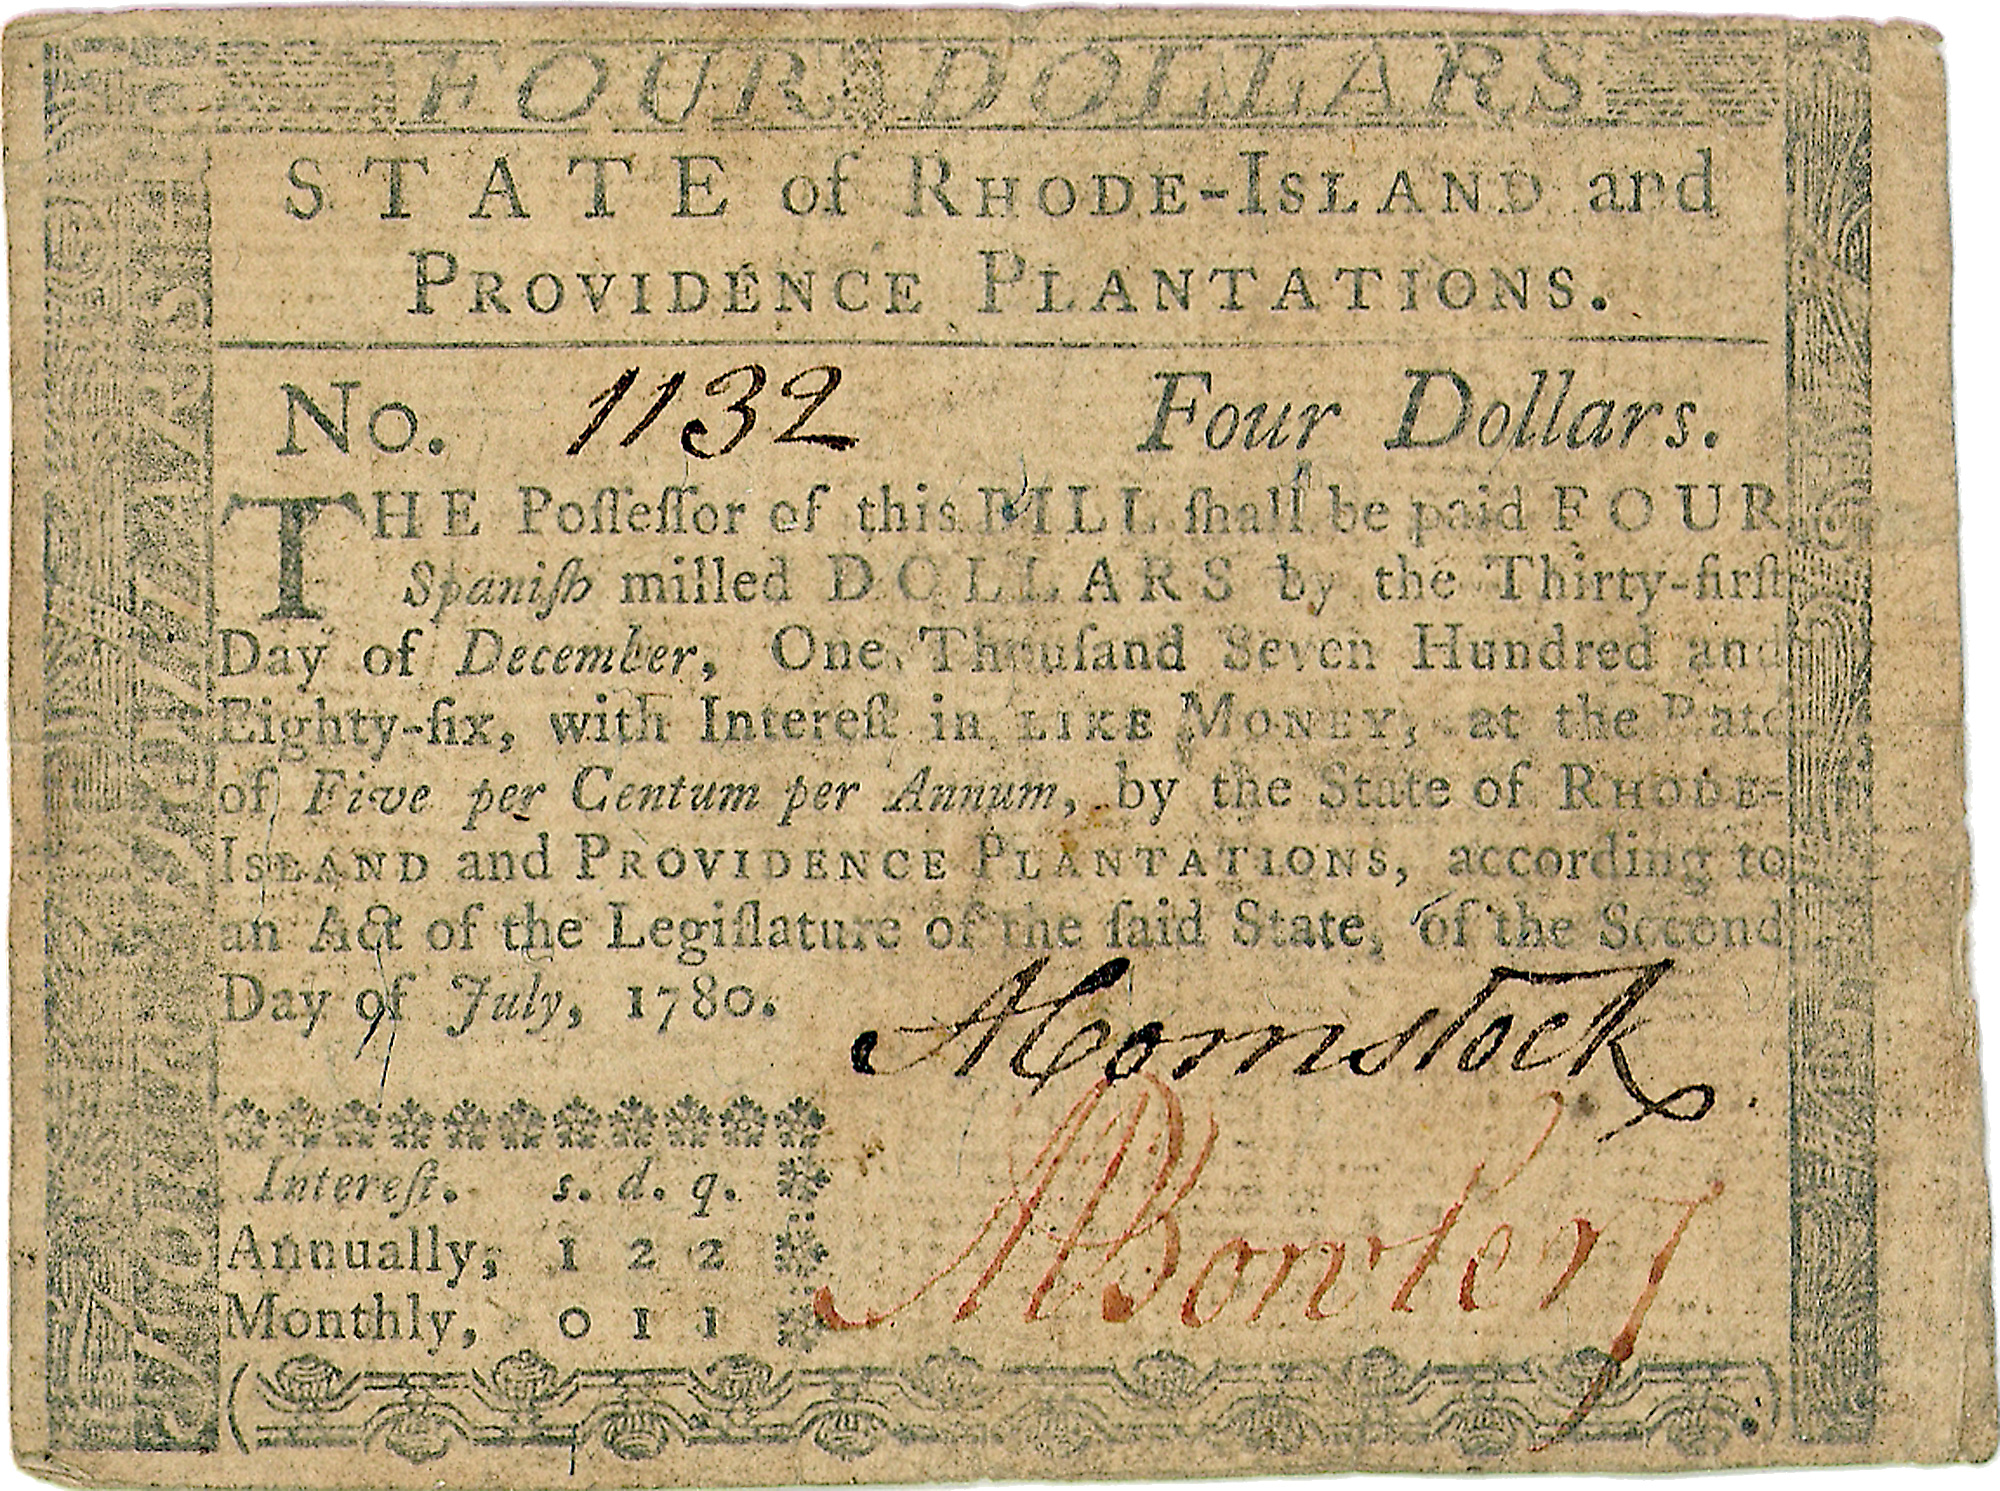 FOUR DOLLARS
STATE of RHODE-ISLAND and
PROVIDENCE PLANTATIONS.
No. 1132 Four Dollars.
THE Poſſeſſor of this BILL ſhall be paid FOUR
Spaniſh milled DOLLARS by the Thirty-firſt
Day of December, One Thouſand Seven Hundred and
Eighty-ſix, with Intereſt in LIKE MONEY, at the Rate
of Five per Centum per Annum, by the State of RHODE-
ISLAND and PROVIDENCE PLANTATIONS, according to
an Act of the Legiſlature of the ſaid State, of the Second
Day of July, 1780.
AComstock
ABowler
Intereſt. s. d. q.
Annually, 1 2 2
Monthly, 0 1 1